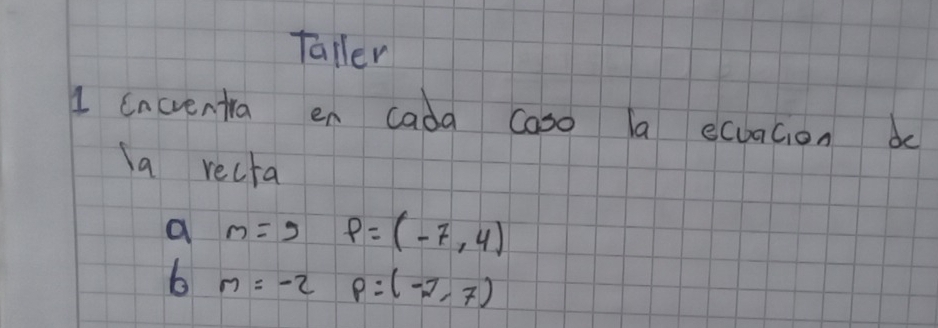 Taller
1 Encuentra en cada caso la ecuacion de
la recta
a m = 9 P = (-7, 4)
b m = -2 P = (-2, 7)